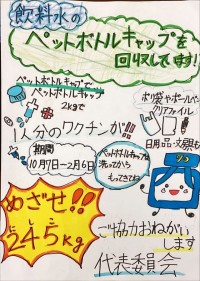 飲料水の
ペットボトルキャップを
回収しています!
ペットボトルキャップで
ペットボトルキャップ
2kgで
1人分のワクチンが!!
ポリ袋やボールペン
クリアファイル
日用品・文房具も
期間
10月7日~2月6日
ペットボトルキャップは
洗ってから
もってきてね
めざせ!!
245kg
ご協力おねがい
します
代表委員会